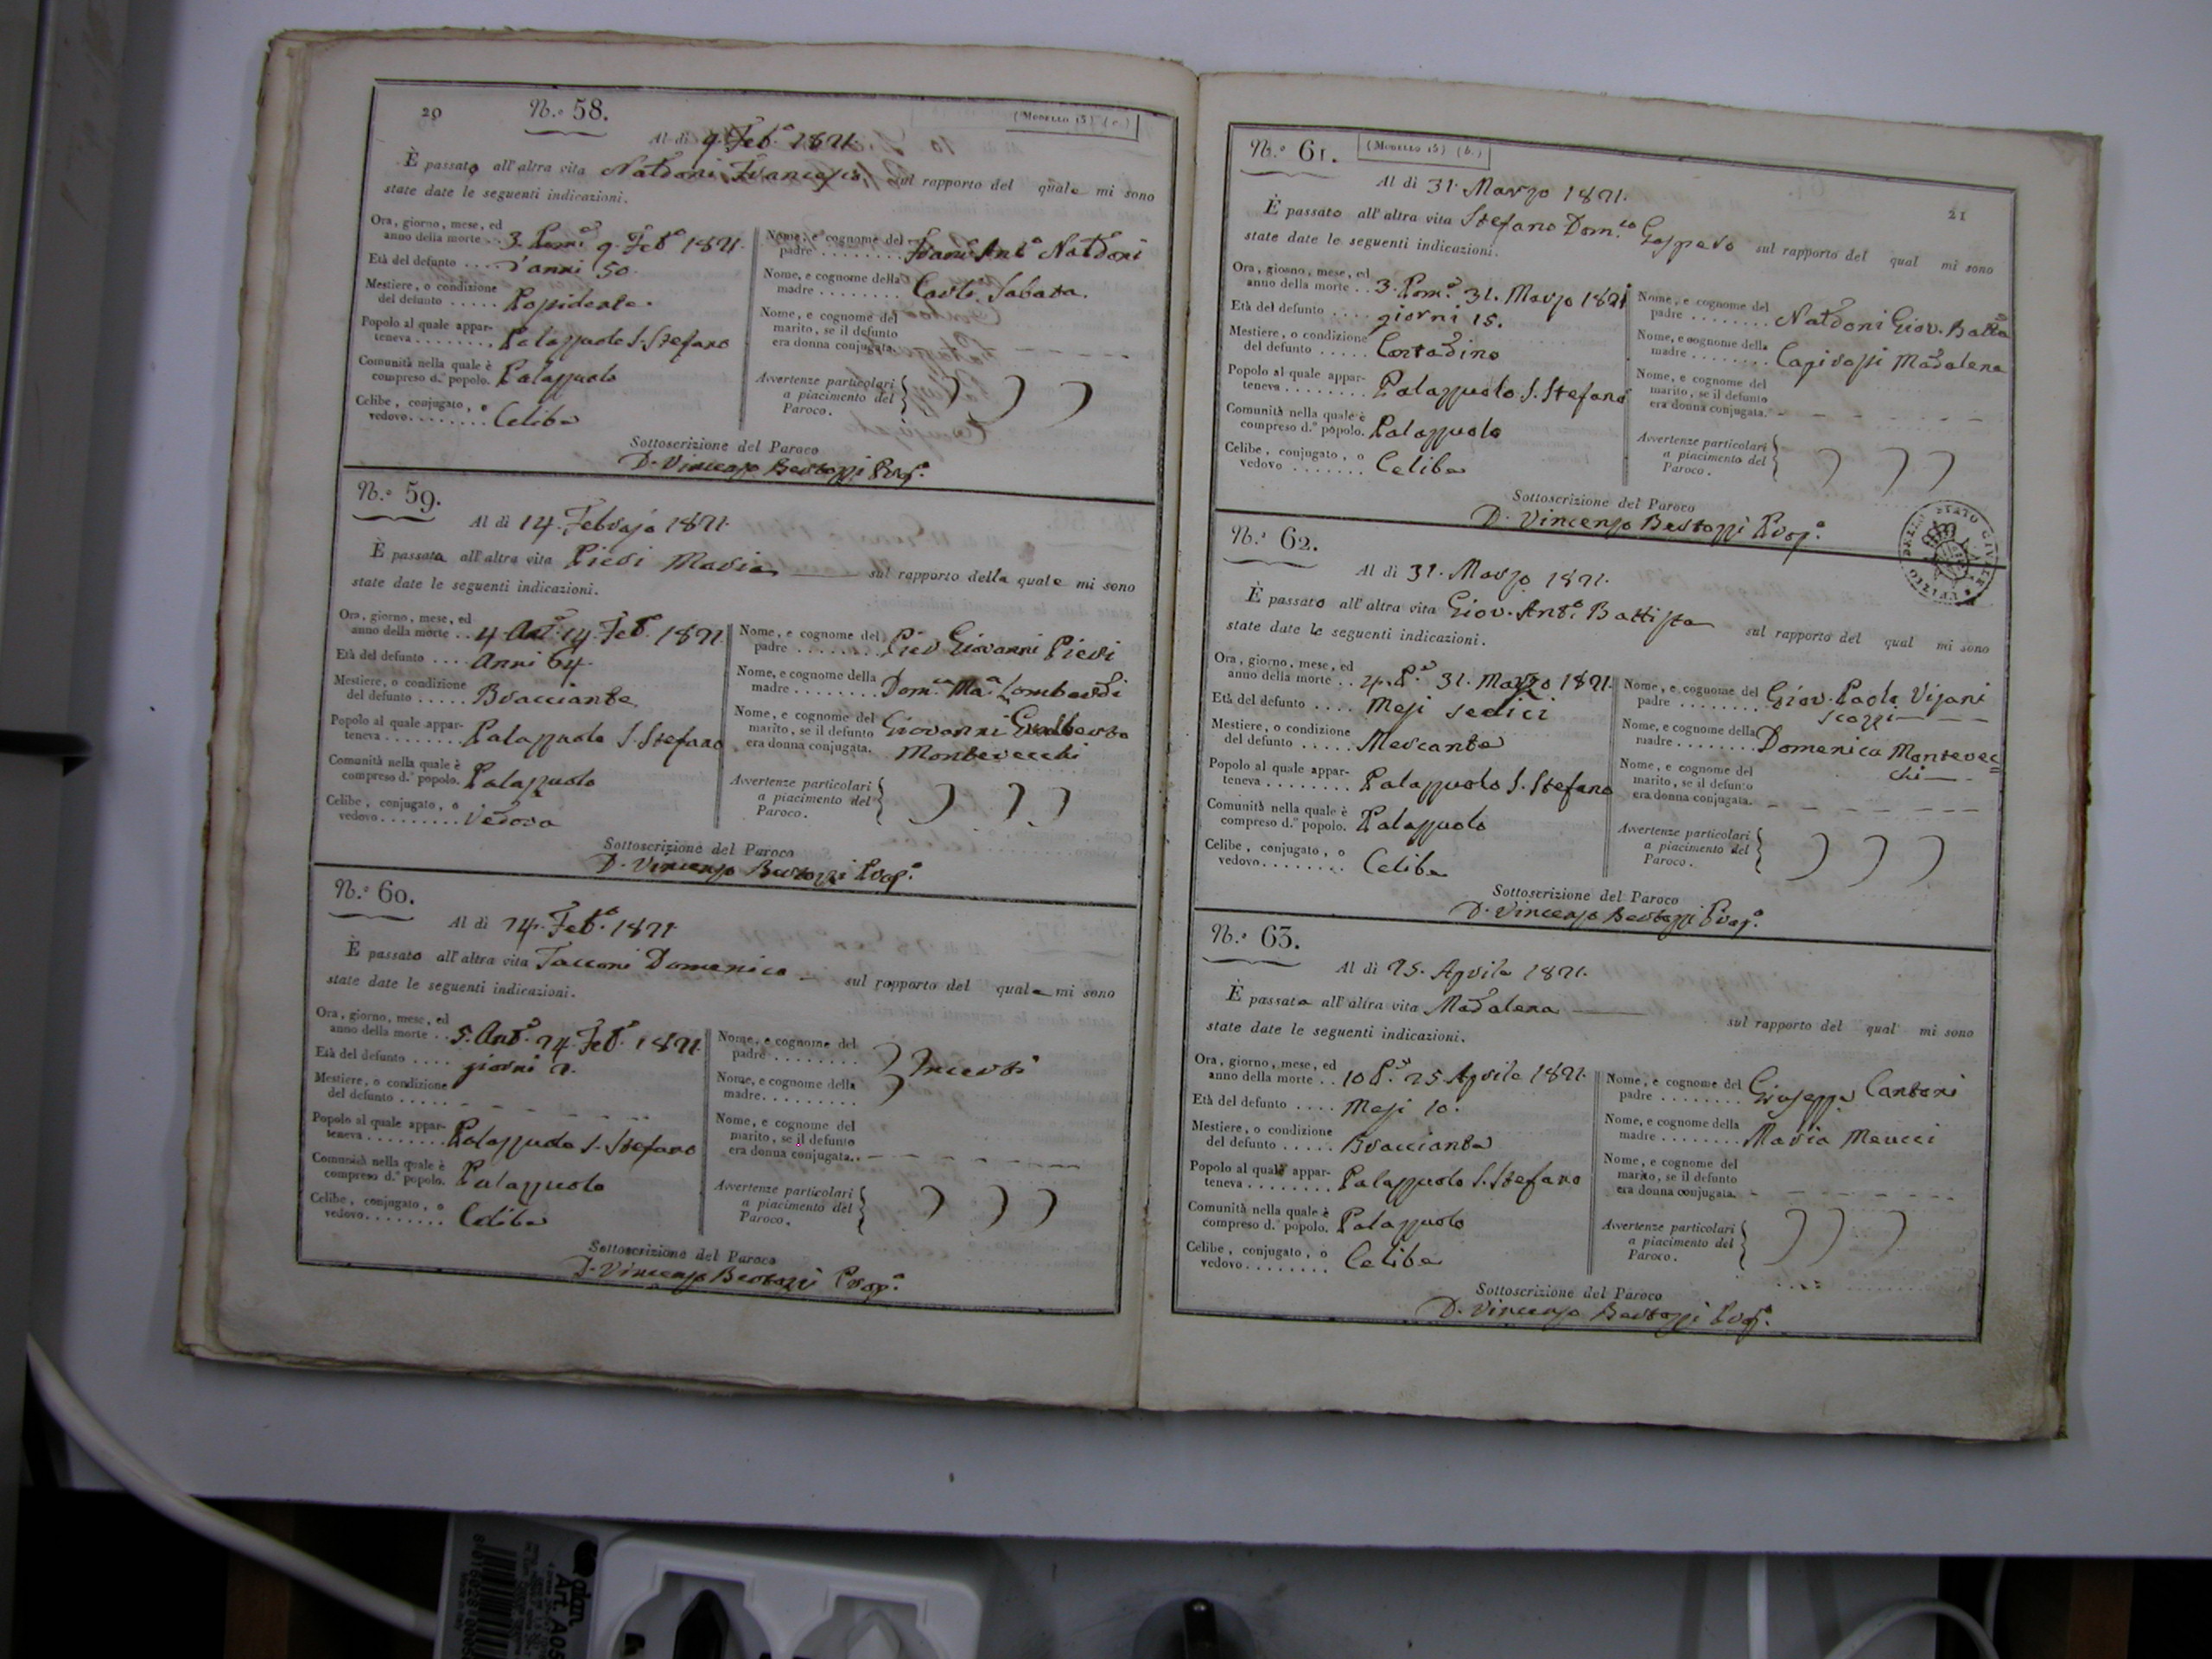 20
N.º 58.
(Modello 15) (c.)
Al dì 9. Feb.º 1821.
È passato all'altra vita Naldoni Francesco sul rapporto del quale mi sono
state date le seguenti indicazioni.
Ora, giorno, mese, ed
anno della morte .. 3. Pom.e 9. Feb.º 1821.
Età del defunto .... d'anni 50.
Mestiere, o condizione
del defunto ..... Possidente.
Popolo al quale appar-
teneva ........ Palazzuolo S. Stefano
Comunità nella quale è
compreso d.º popolo. Palazzuolo
Celibe, conjugato, o
vedovo ........ Celibe
Nome, e cognome del
padre ........ Ant.º Naldoni
Nome, e cognome della
madre ........ Sabata.
Nome, e cognome del
marito, se il defunto
era donna conjugata.
Avvertenze particolari
a piacimento del
Paroco.
Sottoscrizione del Paroco
D. Vincenzo Bertozzi Prop.º
N.º 59.
Al dì 14. Febrajo 1821.
È passata all'altra vita Pieri Maria sul rapporto della quale mi sono
state date le seguenti indicazioni.
Ora, giorno, mese, ed
anno della morte .. 4. Ant. 14. Feb.º 1821.
Età del defunto .... Anni 64.
Mestiere, o condizione
del defunto ..... Bracciante
Popolo al quale appar-
teneva ........ Palazzuolo S. Stefano
Comunità nella quale è
compreso d.º popolo. Palazzuolo
Celibe, conjugato, o
vedovo ........ Vedova
Nome, e cognome del
padre ........ Pier Giovanni Pieri
Nome, e cognome della
madre ........ Dom.ca M.a Lombardi
Nome, e cognome del Giovanni Gualberto
marito, se il defunto
era donna conjugata. Montevecchi
Avvertenze particolari
a piacimento del
Paroco.
Sottoscrizione del Paroco
D. Vincenzo Bertozzi Prop.º
N.º 60.
Al dì 24. Feb.º 1821
È passato all'altra vita Tacconi Domenico sul rapporto del quale mi sono
state date le seguenti indicazioni.
Ora, giorno, mese, ed
anno della morte .. 5. Ant. 24. Feb.º 1821.
Età del defunto .... giorni 2.
Mestiere, o condizione
del defunto .....
Popolo al quale appar-
teneva ........ Palazzuolo S. Stefano
Comunità nella quale è
compreso d.º popolo. Palazzuolo
Celibe, conjugato, o
vedovo ........ Celibe
Nome, e cognome del
padre ........ Incerti
Nome, e cognome della
madre ........
Nome, e cognome del
marito, se il defunto
era donna conjugata.
Avvertenze particolari
a piacimento del
Paroco.
Sottoscrizione del Paroco
D. Vincenzo Bertozzi Prop.º
N.º 61.
(Modello 15) (b.)
21
Al dì 31. Marzo 1821.
È passato all'altra vita Stefano Dom.co Gasparo sul rapporto del qual mi sono
state date le seguenti indicazioni.
Ora, giorno, mese, ed
anno della morte .. 3. Pom.e 31. Marzo 1821
Età del defunto .... giorni 15.
Mestiere, o condizione
del defunto ..... Contadino
Popolo al quale appar-
teneva ........ Palazzuolo S. Stefano
Comunità nella quale è
compreso d.º popolo. Palazzuolo
Celibe, conjugato, o
vedovo ........ Celibe
Nome, e cognome del
padre ........ Naldoni Giov. Batta
Nome, e cognome della
madre ........ Capirossi Madalena
Nome, e cognome del
marito, se il defunto
era donna conjugata.
Avvertenze particolari
a piacimento del
Paroco.
Sottoscrizione del Paroco
D. Vincenzo Bertozzi Prop.º
DELLO STATO CIVILE
N.º 62.
Al dì 31. Marzo 1821.
È passato all'altra vita Giov. Ant.º Battista sul rapporto del qual mi sono
state date le seguenti indicazioni.
Ora, giorno, mese, ed
anno della morte .. 4. P.e 31. Marzo 1821.
Età del defunto .... Mesi sedici
Mestiere, o condizione
del defunto ..... Mercante
Popolo al quale appar-
teneva ........ Palazzuolo S. Stefano
Comunità nella quale è
compreso d.º popolo. Palazzuolo
Celibe, conjugato, o
vedovo ........ Celibe
Nome, e cognome del
padre ........ Giov. Paolo Visani
Scozzi
Nome, e cognome della
madre ........ Domenica Montevec=
chi
Nome, e cognome del
marito, se il defunto
era donna conjugata.
Avvertenze particolari
a piacimento del
Paroco.
Sottoscrizione del Paroco
D. Vincenzo Bertozzi Prop.º
N.º 63.
Al dì 25. Aprile 1821.
È passata all'altra vita Madalena sul rapporto del qual mi sono
state date le seguenti indicazioni.
Ora, giorno, mese, ed
anno della morte .. 10 P.e 25 Aprile 1821.
Età del defunto .... Mesi 10.
Mestiere, o condizione
del defunto ..... Bracciante
Popolo al quale appar-
teneva ........ Palazzuolo S. Stefano
Comunità nella quale è
compreso d.º popolo. Palazzuolo
Celibe, conjugato, o
vedovo ........ Celibe
Nome, e cognome del
padre ........ Giuseppe Cantoni
Nome, e cognome della
madre ........ Maria Meucci
Nome, e cognome del
marito, se il defunto
era donna conjugata.
Avvertenze particolari
a piacimento del
Paroco.
Sottoscrizione del Paroco
D. Vincenzo Bertozzi Prop.º